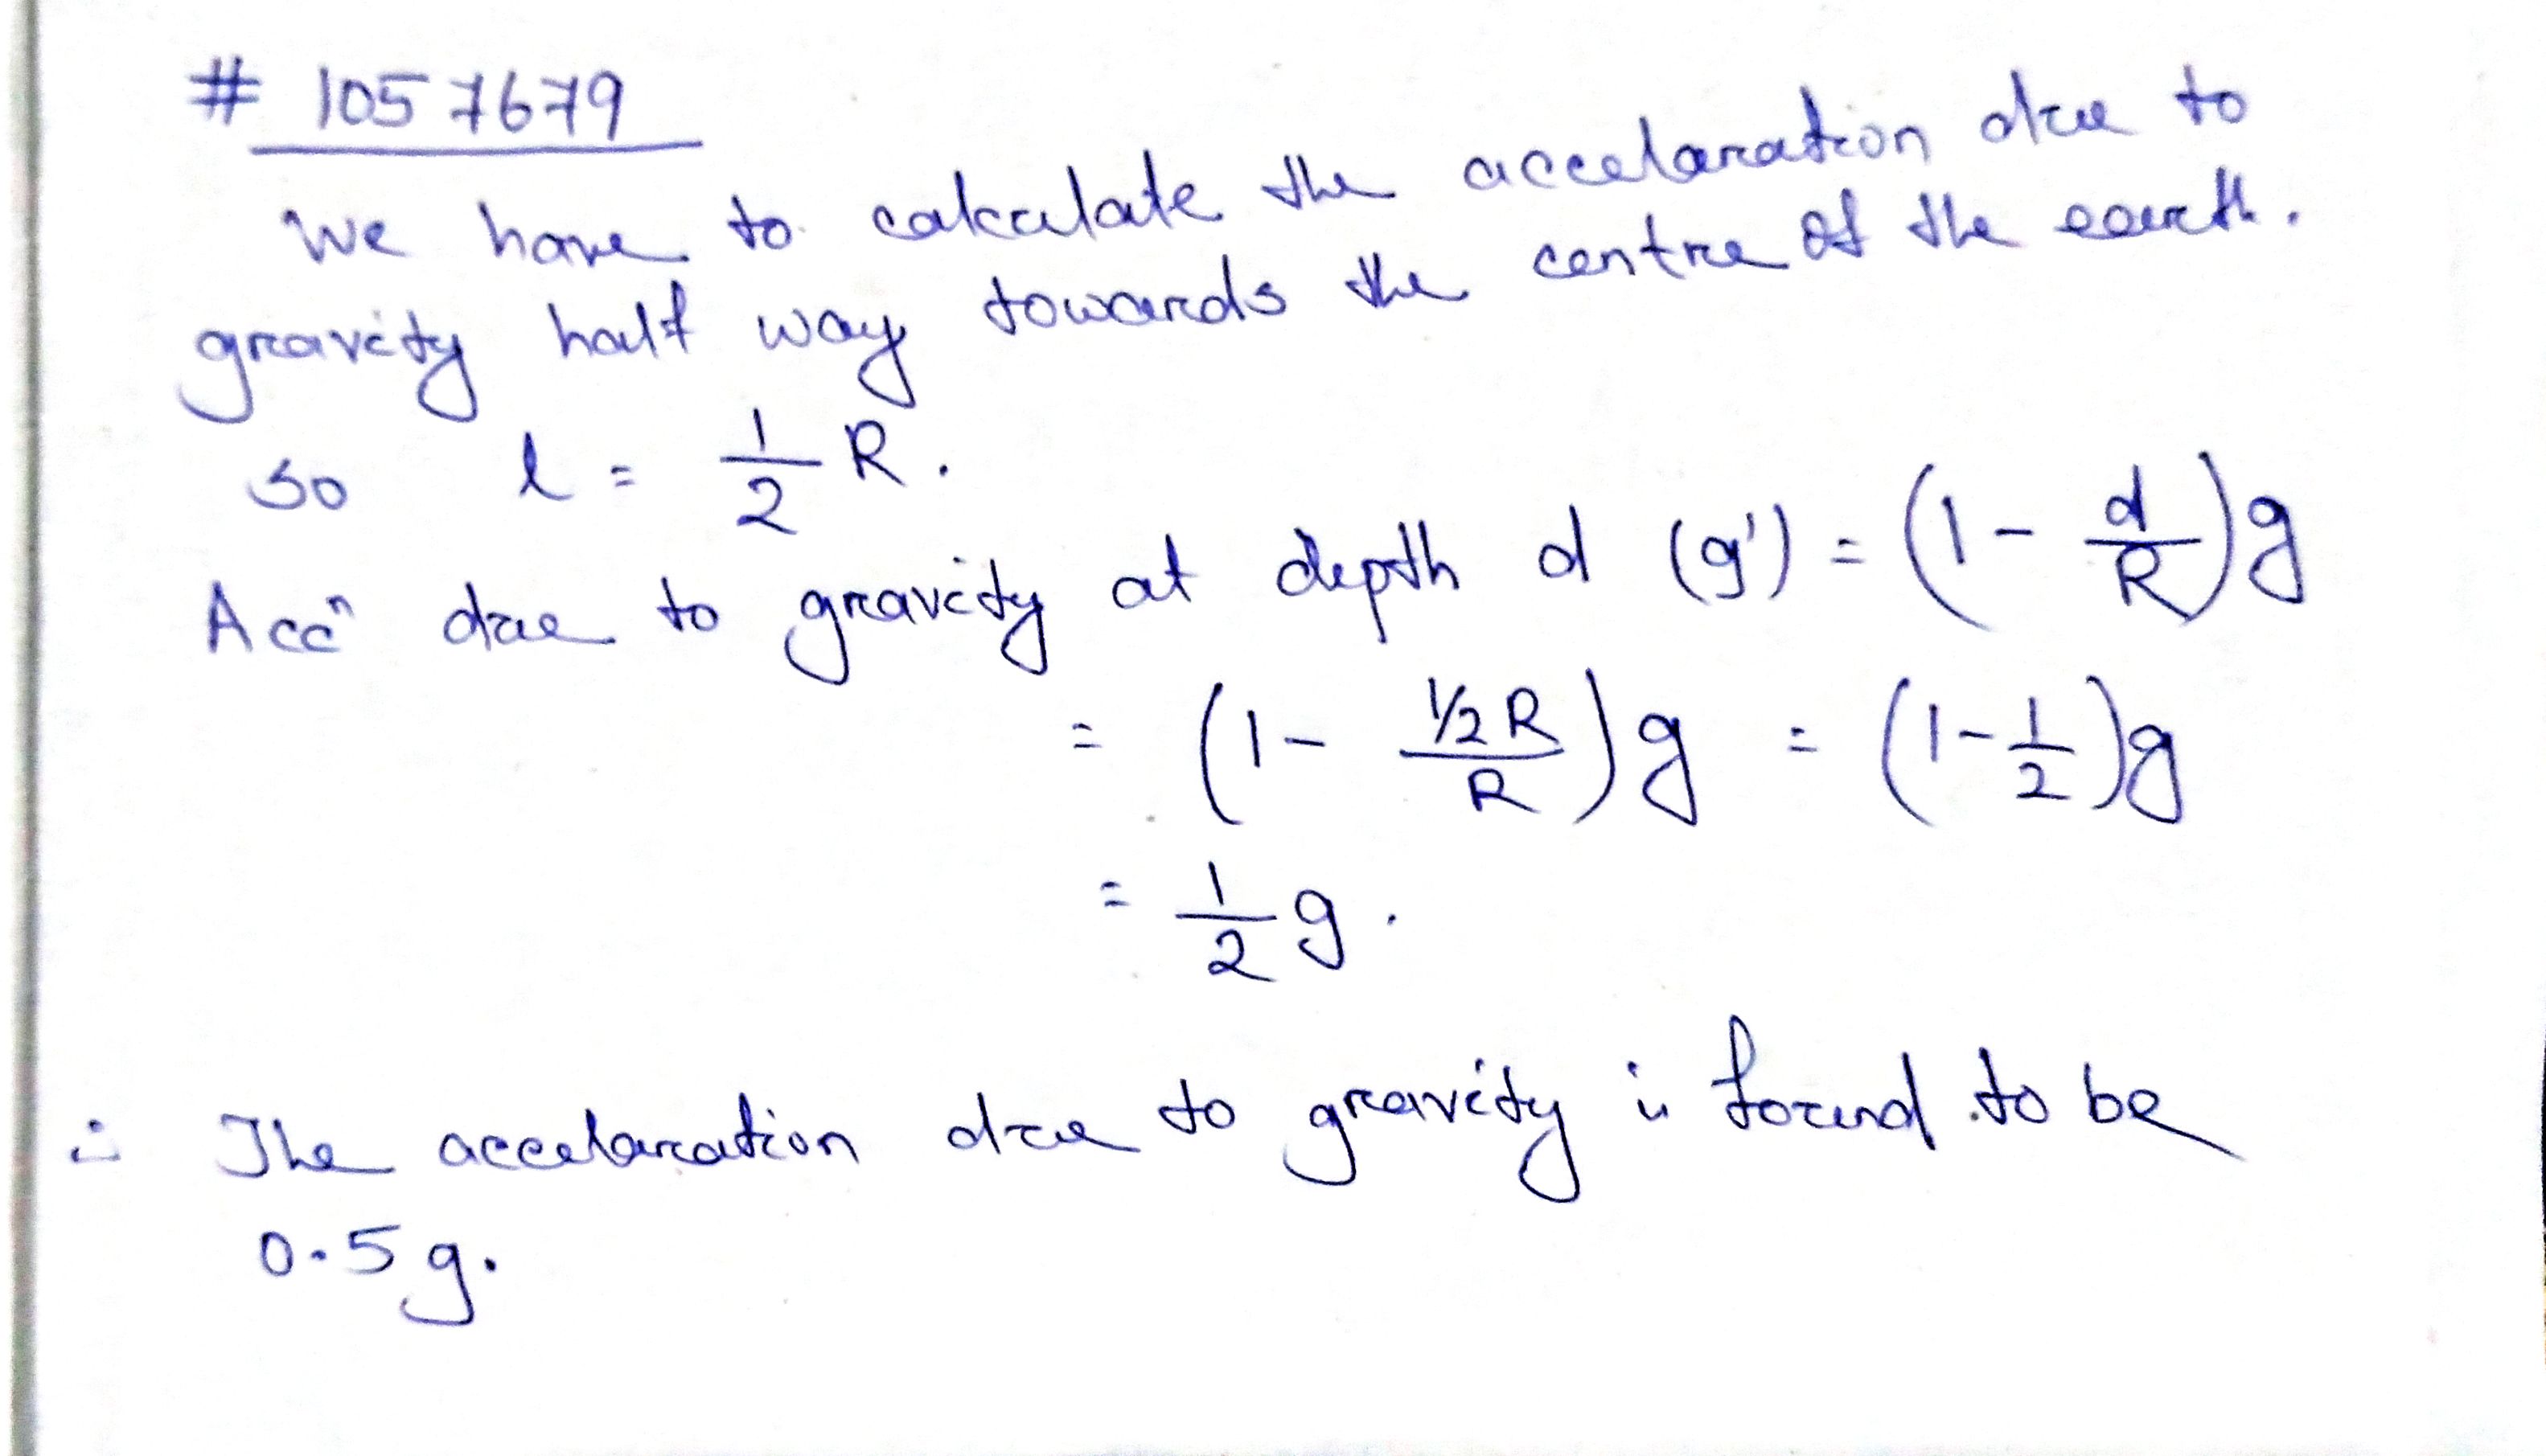 # 1057679
We have to calculate the accelaration due to
gravity half way towards the centre of the earth.
so l = 1/2 R.
Accⁿ due to gravity at depth d (g') = (1 - d/R)g
= (1 - ½R/R)g = (1 - 1/2)g
= 1/2 g.
∴ The accelaration due to gravity is found to be
0.5 g.